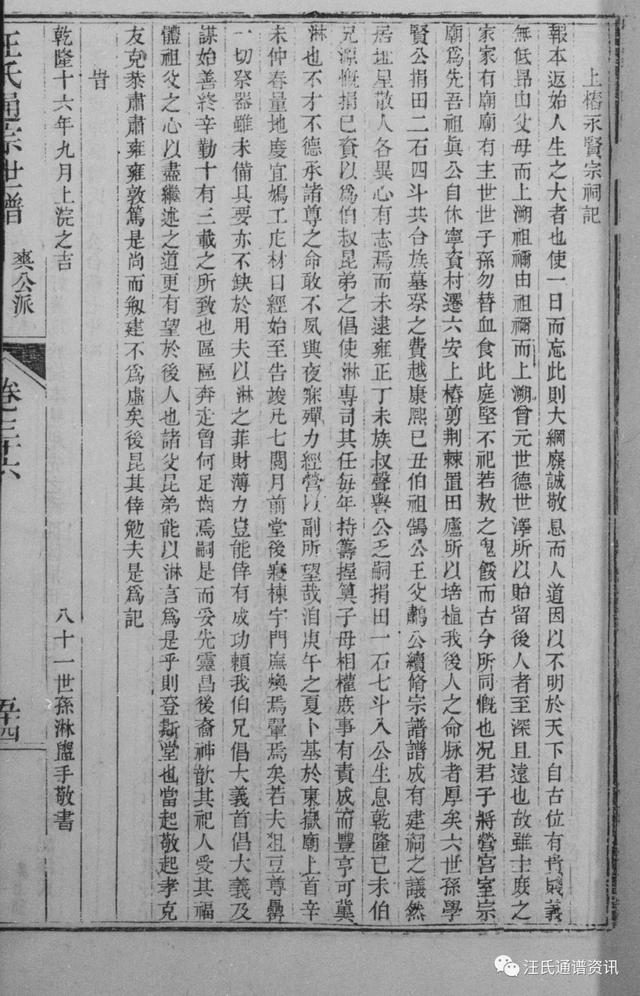 上樁永賢宗祠記
報本返始人生之大者也使一日而忘此則大綱廢誠敬息而人道因以不明於天下自古位有貴賤義
無低昂由父母而上溯祖禰由祖禰而上溯曾元世德世澤所以貽留後人者至深且遠也故雖士庶之
家家有廟廟有主世世子孫勿替血食此庭堅不祀若敖之鬼餒而古今所同慨也况君子將營宮室宗
廟爲先吾祖眞公自休寧資村遷六安上樁剪荆棘置田廬所以培植我後人之命脉者厚矣六世孫學
賢公捐田二石四斗共合族墓祭之費越康熙已丑伯祖鵠公王父鷫公續脩宗譜譜成有建祠之議然
居址星散人各異心有志焉而未逮雍正丁未族叔聲輿公乏嗣捐田一石七斗入公生息乾隆已未伯
兄源慨捐已資以爲伯叔昆弟之倡使淋專司其任每年持籌握算子母相權庻事有責成而豐亨可冀
淋也不才不德承諸尊之命敢不夙興夜寐殫力經營以副所望哉洎庚午之夏卜基於東嶽廟上首辛
未仲春量地度宜鳩工庀材曰經始至告竣凡七閱月前堂後寢棟宇門廡煥焉翬焉矣若夫俎豆尊罍
一切祭器雖未備具要亦不缺於用夫以淋之菲財薄力豈能倖有成功頼我伯兄倡大義首倡大義及
謀始善終辛勤十有三載之所致也區區奔走曾何足齒焉嗣是而妥先靈昌後裔神歆其祀人受其福
體祖父之心以盡繼述之道更有望於後人也諸父昆弟能以淋言爲是乎則登斯堂也當起敬起孝克
友克恭肅肅雍雍敦篤是尚而剏建不爲虛矣後昆其倖勉夫是爲記
旹
乾隆十六年九月上浣之吉
八十一世孫淋盥手敬書
汪氏通宗世譜
爽公派
卷之三十六
五十四
汪氏通谱资讯